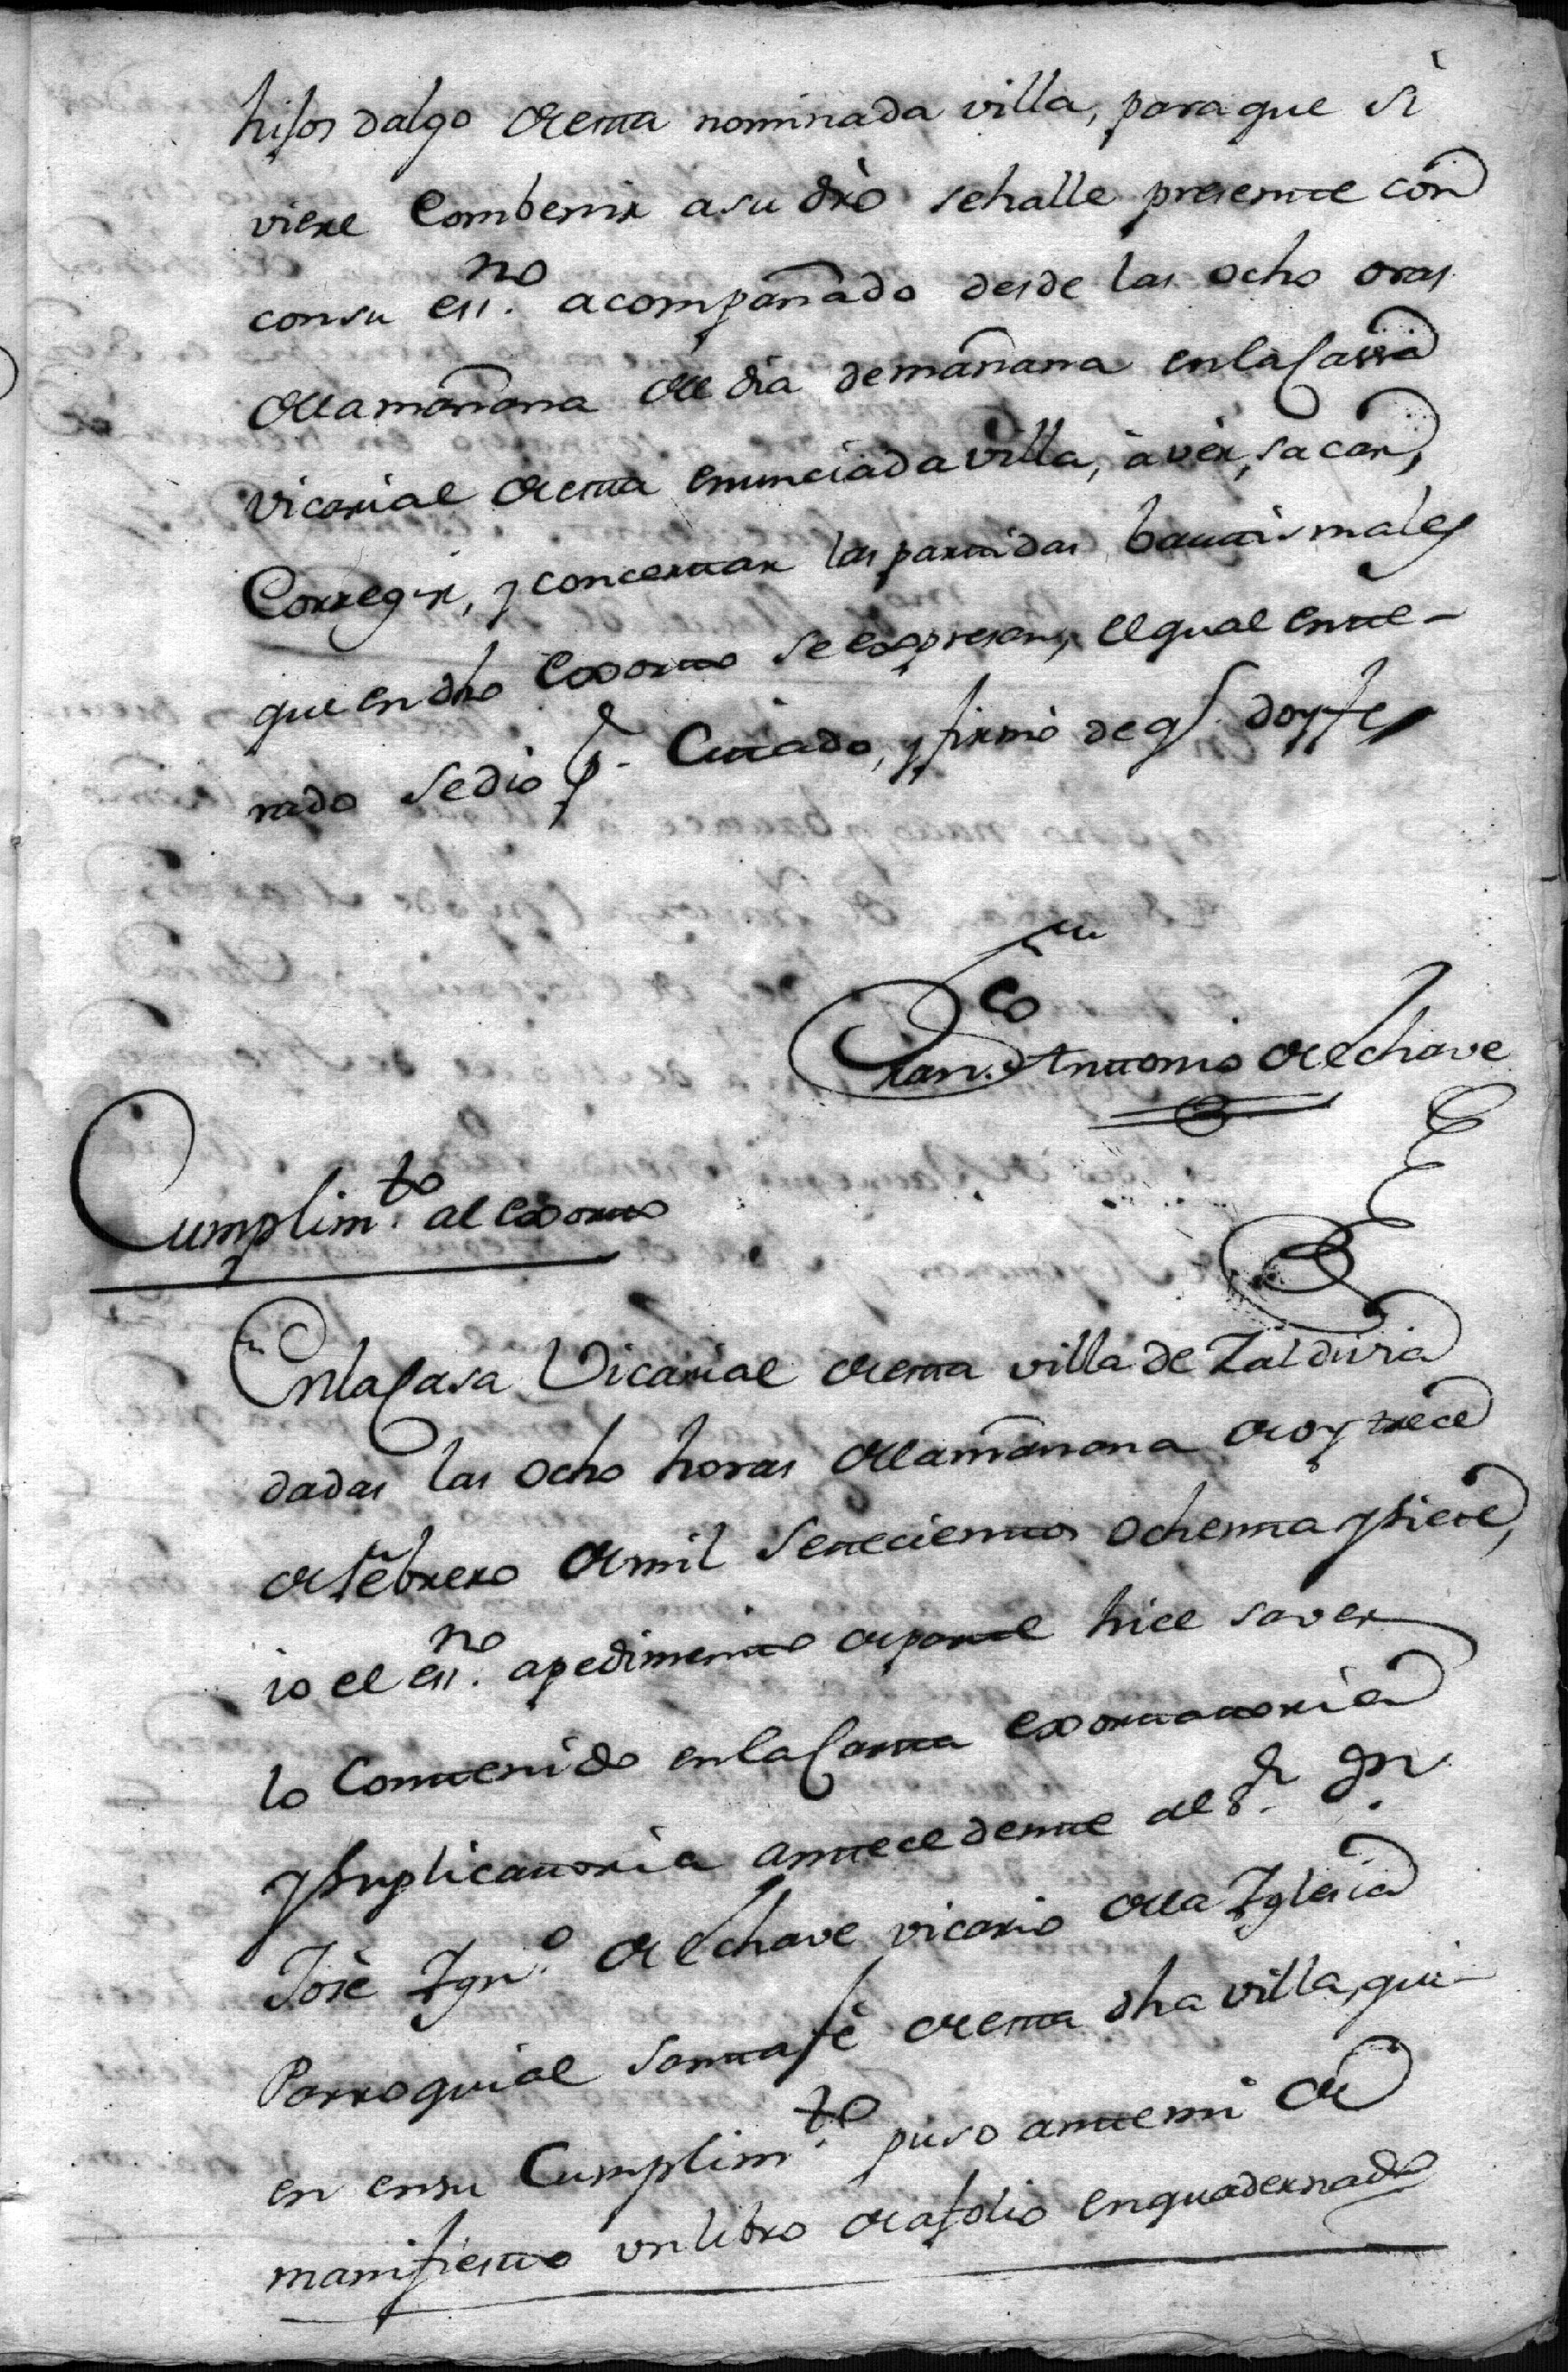 hijos dalgo de esta nominada villa, para que si
viere combenir a su dro se halle presente con
con su essno. acompañado desde las ocho oras
de la mañana del dia de mañana en la Cassa
vicarial de esta enunciada villa, à vèr, sacar,
Corregir, y concertar las partidas bautismales
que en dho Exorto se expresan, el qual ente-
rado se dio pr. Citado, y firmò de q doy fe
Fran.co Antonio de Echave
Cumplim.to al exorto
En la Casa Vicarial de esta villa de Zaldivia
dadas las ocho horas de la mañana de oy trece
de febrero de mil setecientos ochenta y siete,
io el essno. a pedimento de parte hice saver
lo Contenido en la Carta exortatoria
y suplicatoria antecedente al Sr. Dn.
Josè Ign.o de Echave vicario de la Iglesia
Parroquial Santa fè de esta dha villa, qui-
en en su Cumplim.to puso ante mi de
manifiesto un libro de a folio enquadernado